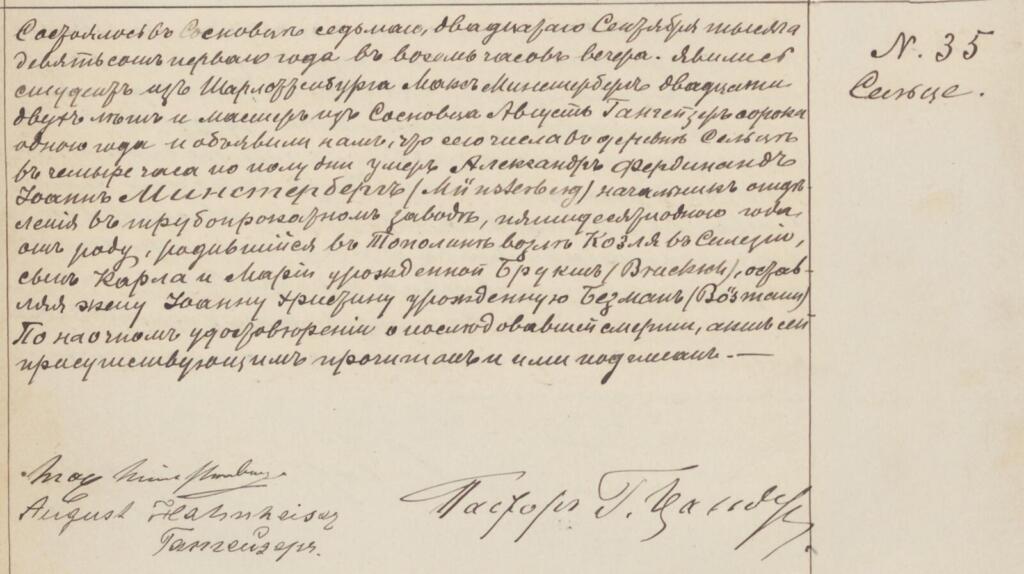 Состоялось въ Сосновицѣ седьмаго, двадцатаго Сентября тысяча
девятьсотъ перваго года въ восемь часовъ вечера. Явились
студентъ изъ Шарлоттенбурга Максъ Минстербергъ двадцати
двухъ лѣтъ и мастеръ изъ Сосновца Августъ Гангейзеръ сорока
одного года и объявили намъ, что сего числа въ деревнѣ Сельцѣ
въ четыре часа по полудни умеръ Александръ Фердинандъ
Іоаннъ Минстербергъ (Münsterberg) начальникъ отдѣ-
ленія въ трубопрокатномъ заводѣ, пятидесятиодного года
отъ роду, родившійся въ Тополинѣ возлѣ Козля въ Силезіи,
сынъ Карла и Маріи урожденной Брукшъ (Brucksch), остав-
ляя жену Іоанну Христину урожденную Безманъ (Bößmann)
По наочномъ удостовѣреніи о послѣдовавшей смерти, актъ сей
присутствующимъ прочитанъ и ими подписанъ. —
N. 35
Сельце.
Max Münsterberg
August Hahnheiser
Гангейзеръ.
Пасторъ Г. Цандеръ